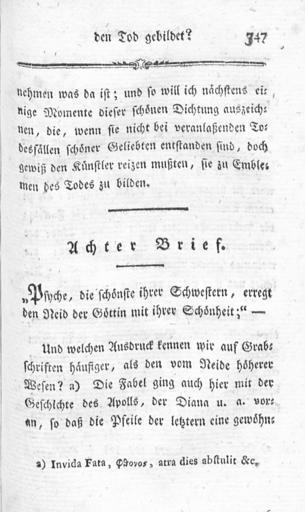 den Tod gebildet? 347
nehmen was da ist; und so will ich nächstens ei-
nige Momente dieser schönen Dichtung auszeich-
nen, die, wenn sie nicht bei veranlaßenden To-
desfällen schöner Geliebten entstanden sind, doch
gewiß den Künstler reizen mußten, sie zu Emble-
men des Todes zu bilden.
Achter Brief.
„Psyche, die schönste ihrer Schwestern, erregt
den Neid der Göttin mit ihrer Schönheit;“ —
Und welchen Ausdruck kennen wir auf Grab-
schriften häufiger, als den vom Neide höherer
Wesen? a) Die Fabel ging auch hier mit der
Geschichte des Apolls, der Diana u. a. vor-
an, so daß die Pfeile der letztern eine gewöhn-
a) Invida Fata, φθονος, atra dies abstulit &c.